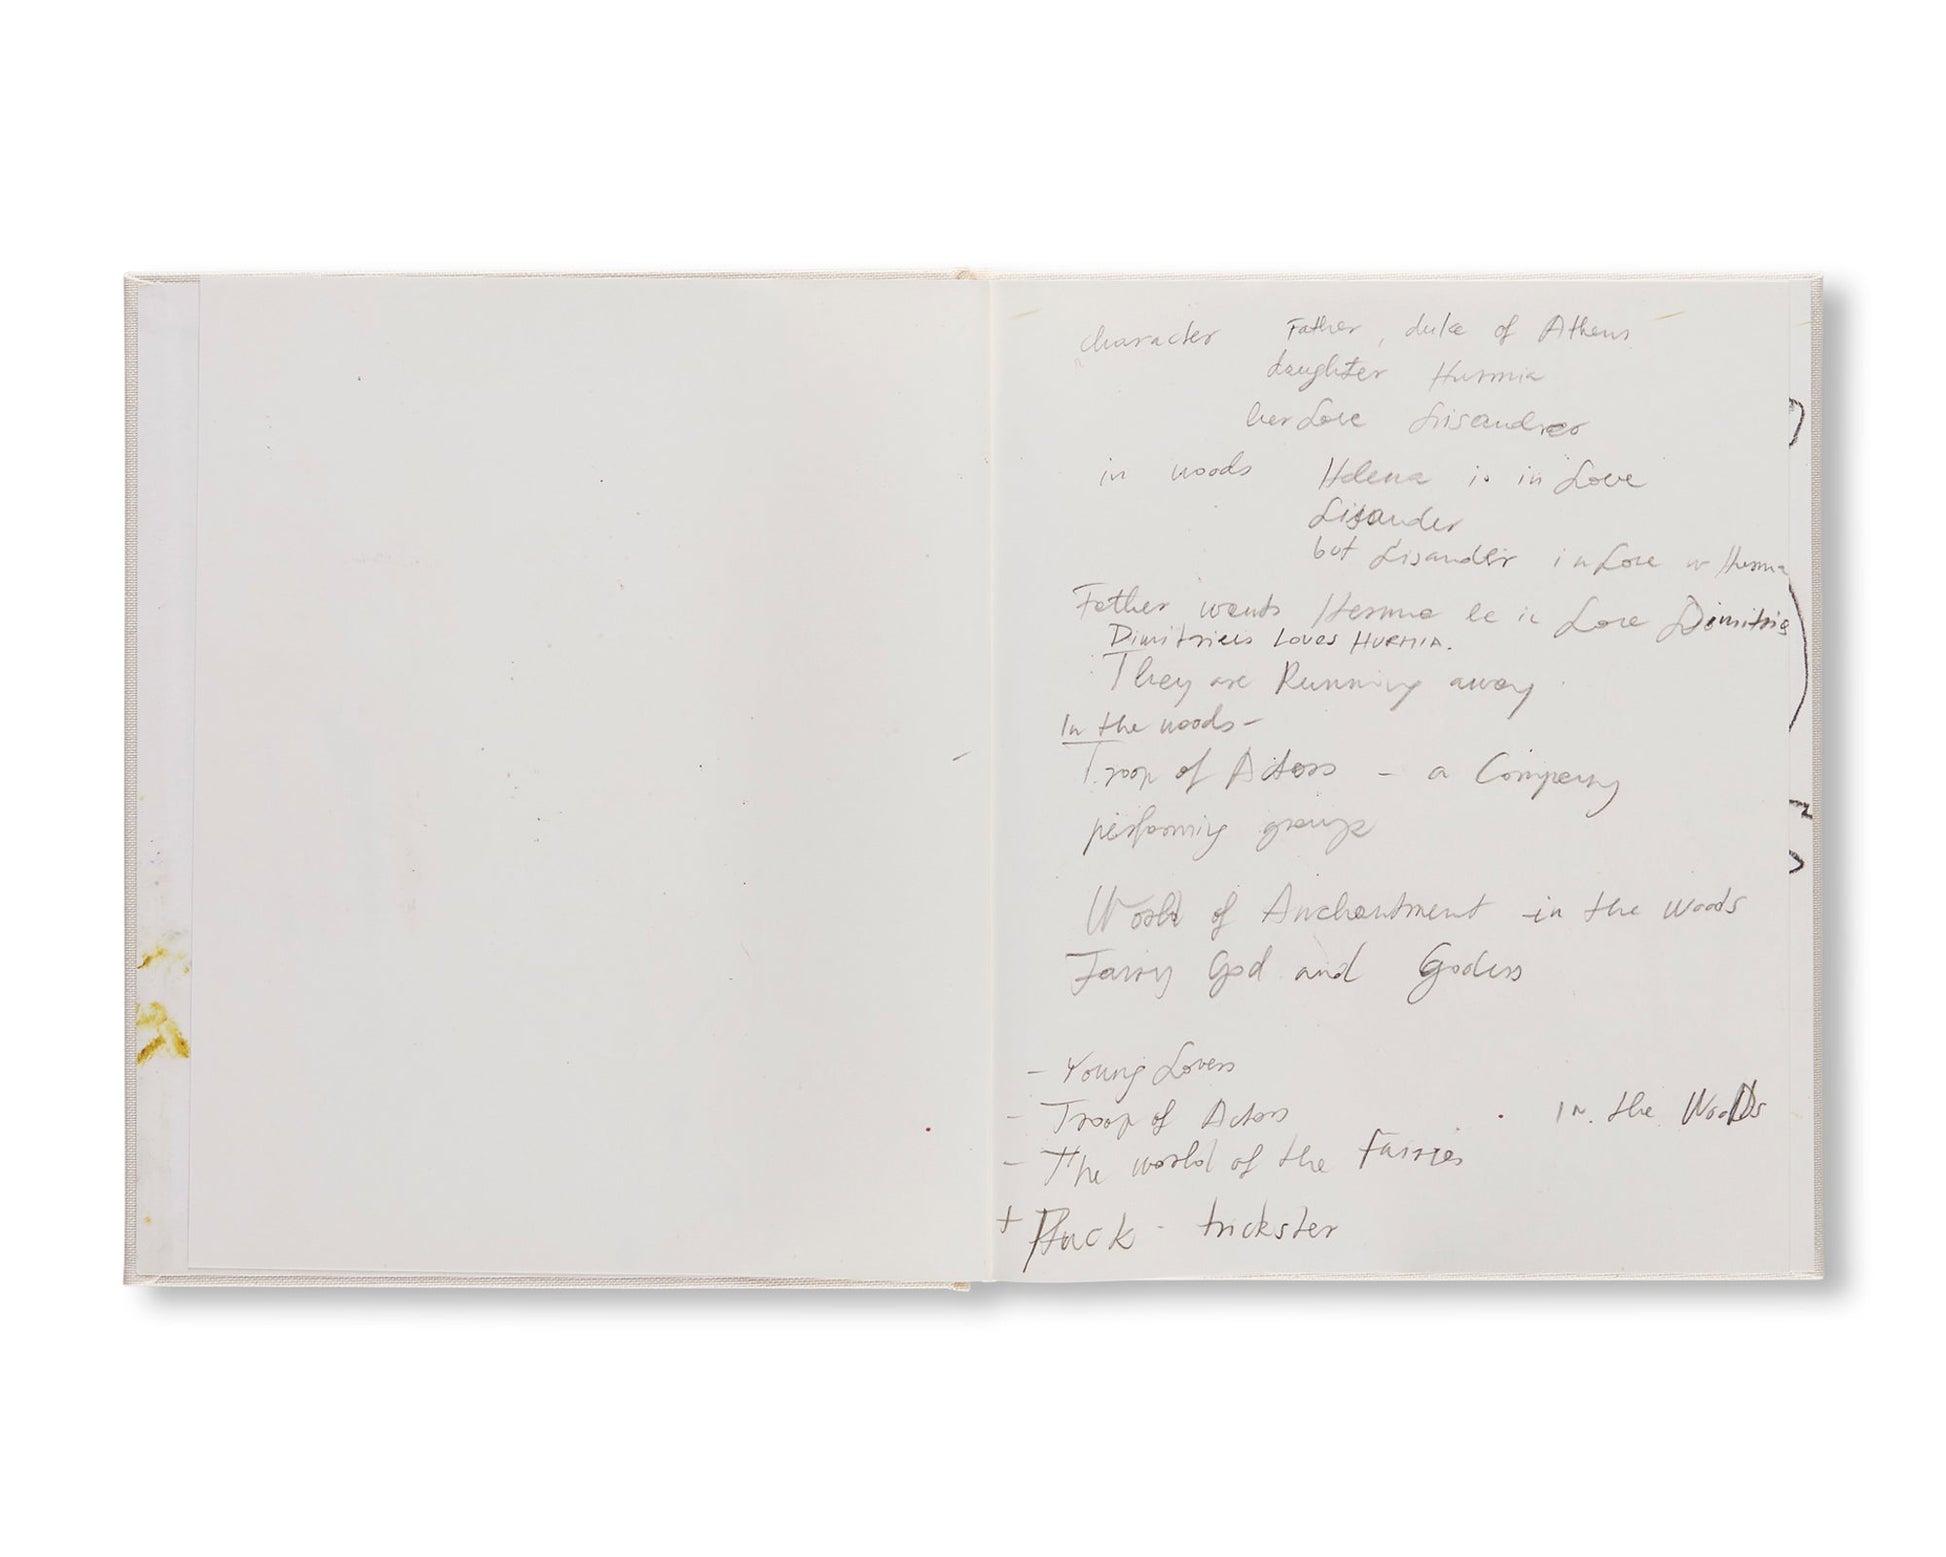 character Father, duke of Athens
daughter Hurmia
her Love Lisandreo
in woods Helena is in Love
Lisander
but Lisander in Love w Hermia
Father wants Hermia be in Love Dimitris
Dimitrieus Loves HURMIA.
They are Running away
In the woods –
Troop of Actors – a Company
performing groups
World of Anchantment in the woods
Fairy God and Godess
– Young Lovers
– Troop of Actors in. the WooDs
– The world of the Fairies
+ Puck - trickster